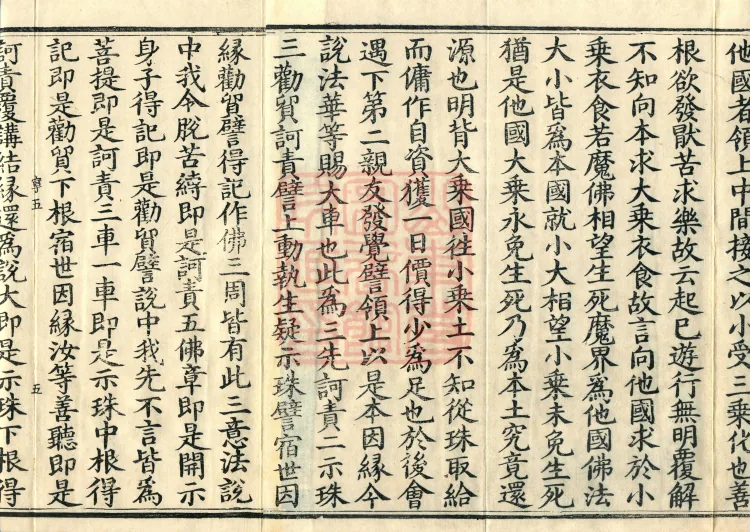 他國者領上中間接之以小受三乗化也善
根欲發猒苦求樂故云起已遊行無明覆解
不知向本求大乗衣食故言向他國求於小
乗衣食若魔佛相望生死魔界爲他國佛法
大小皆爲本國就小大相望小乗未免生死
猶是他國大乗永免生死乃爲本土究竟還
源也明背大乗國往小乗土不知從珠取給
而傭作自資獲一日價得少爲足也於後會
遇下第二親友發覺譬領上以是本因縁今
說法華等賜大車也此爲三先訶責二示珠
三勸貿訶責譬上動執生疑示珠譬宿世因
縁勸貿譬得記作佛三周皆有此三意法說
中我令脫苦縛即是訶責五佛章即是開示
身子得記即是勸貿譬說中我先不言皆爲
菩提即是訶責三車一車即是示珠中根得
記即是勸貿下根宿世因縁汝等善聽即是
寧五
五
訶責覆講結縁還爲說大即是示珠下根得